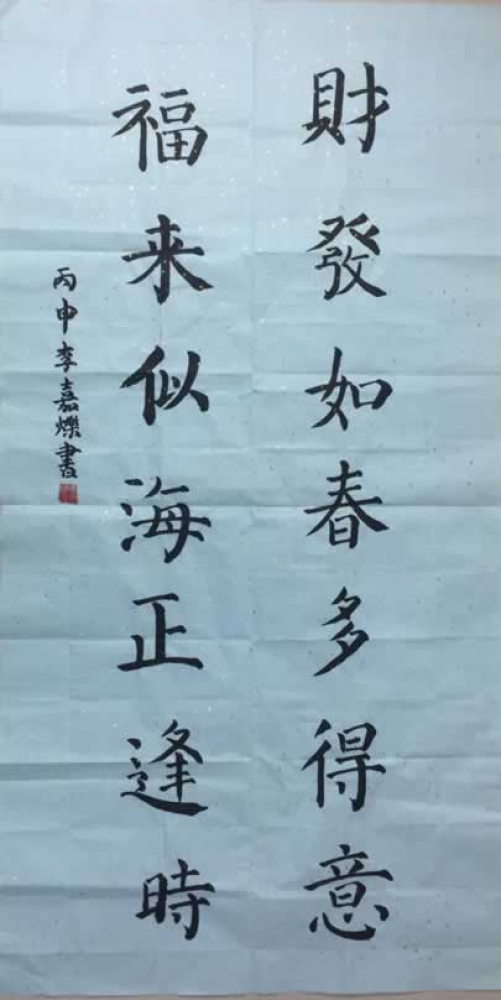 財發如春多得意
福来似海正逢時
丙申李嘉爍書